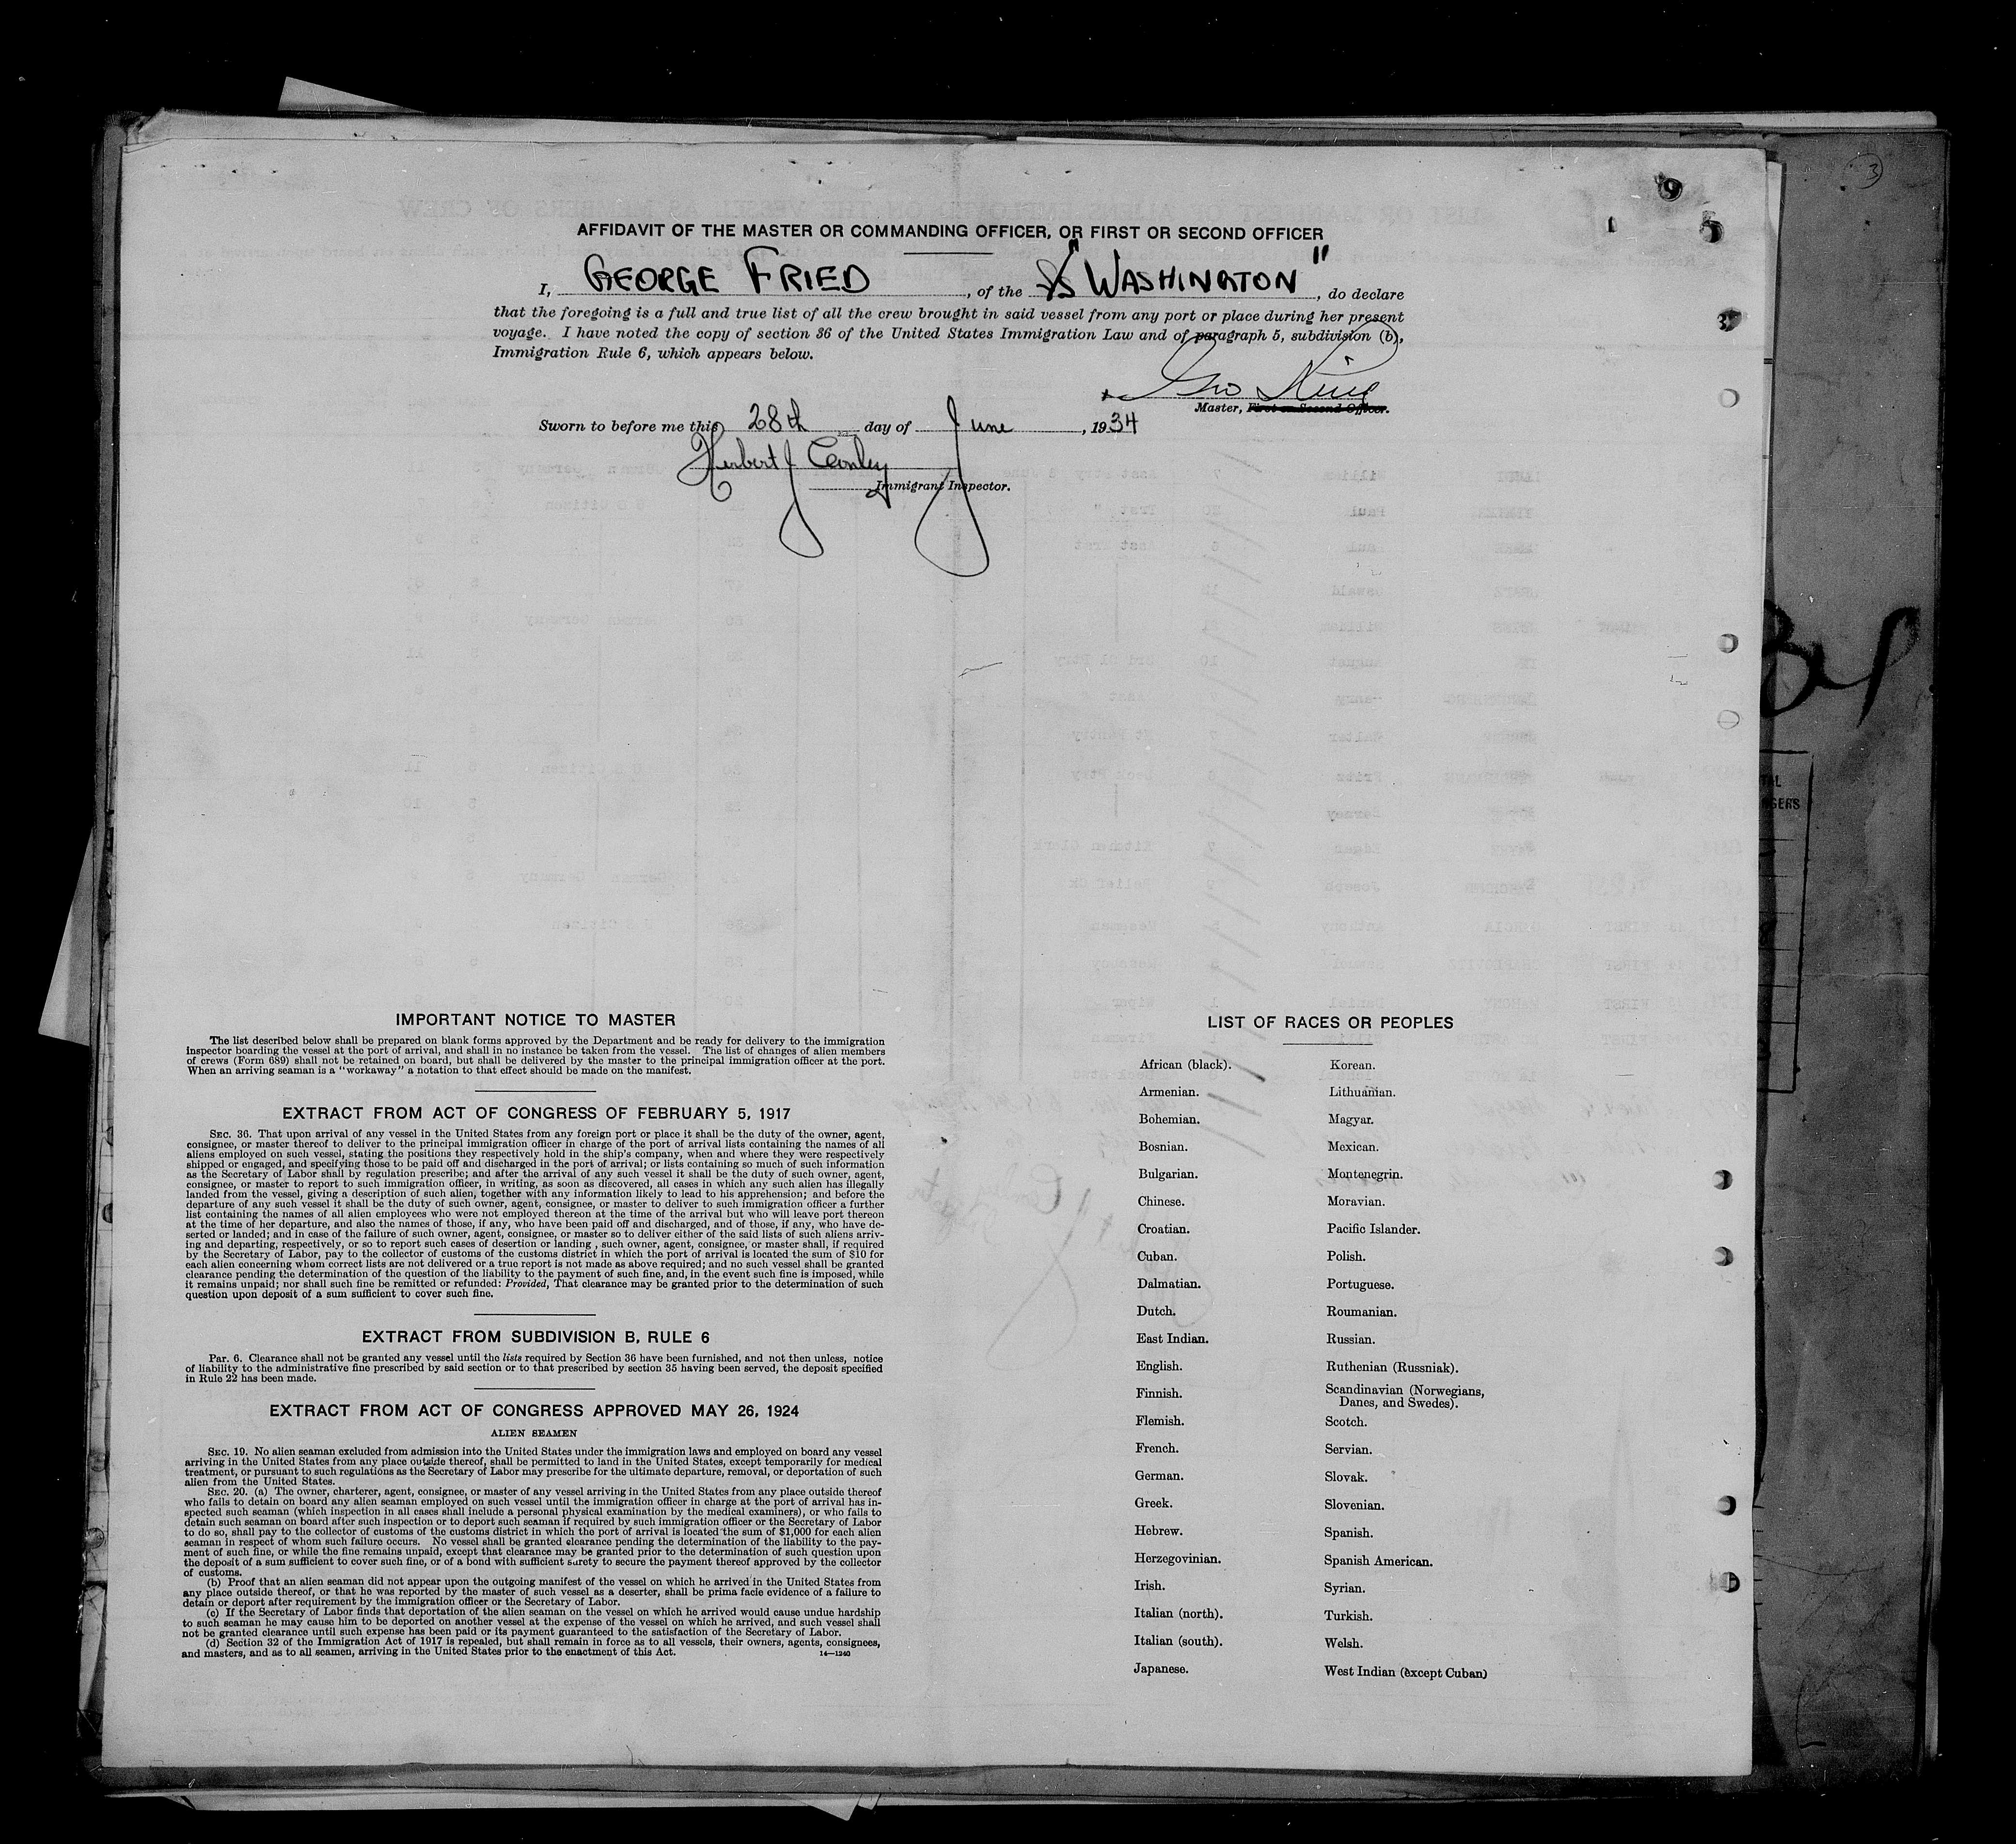 AFFIDAVIT OF THE MASTER OR COMMANDING OFFICER, OR FIRST OR SECOND OFFICER
I, GEORGE FRIED, of the S/S "WASHINGTON", do declare
that the foregoing is a full and true list of all the crew brought in said vessel from any port or place during her present
voyage. I have noted the copy of section 36 of the United States Immigration Law and of paragraph 5, subdivision (b),
Immigration Rule 6, which appears below.
Geo Fried
Master, First or Second Officer.
Sworn to before me this 28th day of June, 1934
Herbert J Conley
Immigrant Inspector.
IMPORTANT NOTICE TO MASTER
The list described below shall be prepared on blank forms approved by the Department and be ready for delivery to the immigration
inspector boarding the vessel at the port of arrival, and shall in no instance be taken from the vessel. The list of changes of alien members
of crews (Form 689) shall not be retained on board, but shall be delivered by the master to the principal immigration officer at the port.
When an arriving seaman is a "workaway" a notation to that effect should be made on the manifest.
EXTRACT FROM ACT OF CONGRESS OF FEBRUARY 5, 1917
SEC. 36. That upon arrival of any vessel in the United States from any foreign port or place it shall be the duty of the owner, agent,
consignee, or master thereof to deliver to the principal immigration officer in charge of the port of arrival lists containing the names of all
aliens employed on such vessel, stating the positions they respectively hold in the ship's company, when and where they were respectively
shipped or engaged, and specifying those to be paid off and discharged in the port of arrival; or lists containing so much of such information
as the Secretary of Labor shall by regulation prescribe; and after the arrival of any such vessel it shall be the duty of such owner, agent,
consignee, or master to report to such immigration officer, in writing, as soon as discovered, all cases in which any such alien has illegally
landed from the vessel, giving a description of such alien, together with any information likely to lead to his apprehension; and before the
departure of any such vessel it shall be the duty of such owner, agent, consignee, or master to deliver to such immigration officer a further
list containing the names of all alien employees who were not employed thereon at the time of the arrival but who will leave port thereon
at the time of her departure, and also the names of those, if any, who have been paid off and discharged, and of those, if any, who have de-
serted or landed; and in case of the failure of such owner, agent, consignee, or master so to deliver either of the said lists of such aliens arriv-
ing and departing, respectively, or so to report such cases of desertion or landing , such owner, agent, consignee, or master shall, if required
by the Secretary of Labor, pay to the collector of customs of the customs district in which the port of arrival is located the sum of $10 for
each alien concerning whom correct lists are not delivered or a true report is not made as above required; and no such vessel shall be granted
clearance pending the determination of the question of the liability to the payment of such fine, and, in the event such fine is imposed, while
it remains unpaid; nor shall such fine be remitted or refunded: Provided, That clearance may be granted prior to the determination of such
question upon deposit of a sum sufficient to cover such fine.
EXTRACT FROM SUBDIVISION B, RULE 6
Par. 6. Clearance shall not be granted any vessel until the lists required by Section 36 have been furnished, and not then unless, notice
of liability to the administrative fine prescribed by said section or to that prescribed by section 35 having been served, the deposit specified
in Rule 22 has been made.
EXTRACT FROM ACT OF CONGRESS APPROVED MAY 26, 1924
ALIEN SEAMEN
SEC. 19. No alien seaman excluded from admission into the United States under the immigration laws and employed on board any vessel
arriving in the United States from any place outside thereof, shall be permitted to land in the United States, except temporarily for medical
treatment, or pursuant to such regulations as the Secretary of Labor may prescribe for the ultimate departure, removal, or deportation of such
alien from the United States.
SEC. 20. (a) The owner, charterer, agent, consignee, or master of any vessel arriving in the United States from any place outside thereof
who fails to detain on board any alien seaman employed on such vessel until the immigration officer in charge at the port of arrival has in-
spected such seaman (which inspection in all cases shall include a personal physical examination by the medical examiners), or who fails to
detain such seaman on board after such inspection or to deport such seaman if required by such immigration officer or the Secretary of Labor
to do so, shall pay to the collector of customs of the customs district in which the port of arrival is located the sum of $1,000 for each alien
seaman in respect of whom such failure occurs. No vessel shall be granted clearance pending the determination of the liability to the pay-
ment of such fine, or while the fine remains unpaid, except that clearance may be granted prior to the determination of such question upon
the deposit of a sum sufficient to cover such fine, or of a bond with sufficient surety to secure the payment thereof approved by the collector
of customs.
(b) Proof that an alien seaman did not appear upon the outgoing manifest of the vessel on which he arrived in the United States from
any place outside thereof, or that he was reported by the master of such vessel as a deserter, shall be prima facie evidence of a failure to
detain or deport after requirement by the immigration officer or the Secretary of Labor.
(c) If the Secretary of Labor finds that deportation of the alien seaman on the vessel on which he arrived would cause undue hardship
to such seaman he may cause him to be deported on another vessel at the expense of the vessel on which he arrived, and such vessel shall
not be granted clearance until such expense has been paid or its payment guaranteed to the satisfaction of the Secretary of Labor.
(d) Section 32 of the Immigration Act of 1917 is repealed, but shall remain in force as to all vessels, their owners, agents, consignees,
and masters, and as to all seamen, arriving in the United States prior to the enactment of this Act.
14—1240
LIST OF RACES OR PEOPLES
African (black). Korean.
Armenian. Lithuanian.
Bohemian. Magyar.
Bosnian. Mexican.
Bulgarian. Montenegrin.
Chinese. Moravian.
Croatian. Pacific Islander.
Cuban. Polish.
Dalmatian. Portuguese.
Dutch. Roumanian.
East Indian. Russian.
English. Ruthenian (Russniak).
Finnish. Scandinavian (Norwegians,
Danes, and Swedes).
Flemish. Scotch.
French. Servian.
German. Slovak.
Greek. Slovenian.
Hebrew. Spanish.
Herzegovinian. Spanish American.
Irish. Syrian.
Italian (north). Turkish.
Italian (south). Welsh.
Japanese. West Indian (except Cuban)
3